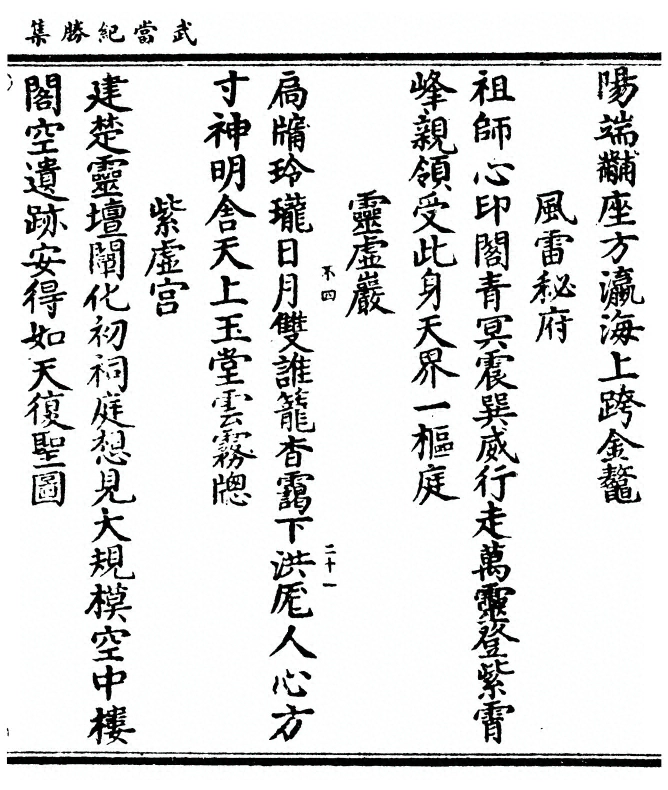 武當紀勝集
陽端黼座方瀛海上跨金鼇
風雷秘府
祖師心印閣青冥震巽威行走萬靈登紫霄
峰親領受此身天界一樞庭
靈虛巖
扃牖玲瓏日月雙誰籠杳靄下洪厖人心方
寸神明舍天上玉堂雲霧牕
不四
二十一
紫虛宫
建楚靈壇闡化初祠庭想見大規模空中樓
閣空遺跡安得如天復聖圖